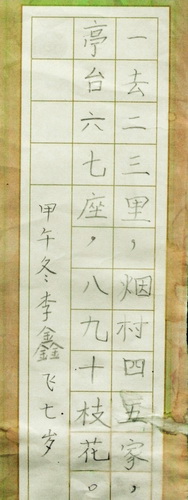 一去二三里，烟村四五家，
亭台六七座，八九十枝花。
甲午冬李鑫飞七岁